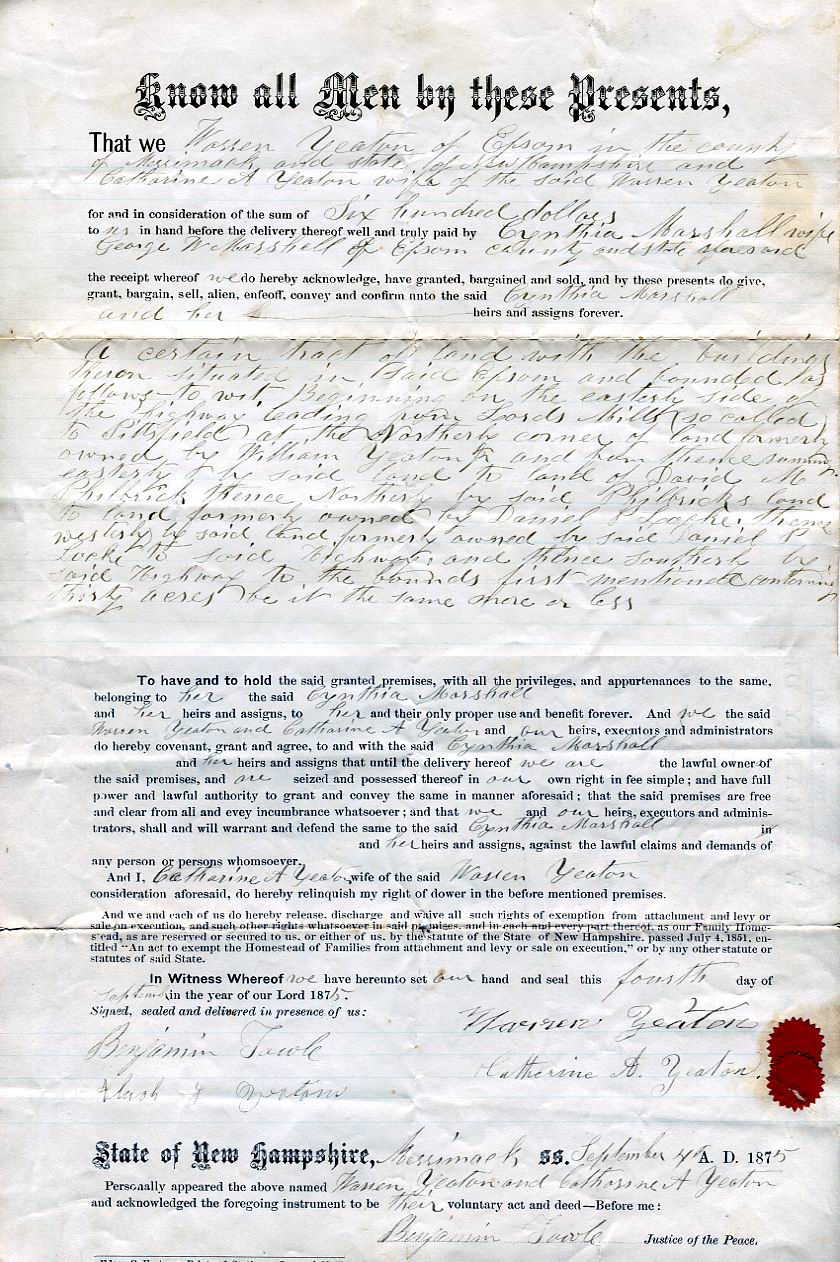 Know all Men by these Presents,
That we Warren Yeaton of Epsom in the county
of Merrimack and state of New Hampshire and
Catharine A Yeaton wife of the said Warren Yeaton
for and in consideration of the sum of Six hundred dollars
to us in hand before the delivery thereof well and truly paid by Cynthia Marshall wife
George W Marshall of Epsom county and state
the receipt whereof we do hereby acknowledge, have granted, bargained and sold, and by these presents do give,
grant, bargain, sell, alien, enfeoff, convey and confirm unto the said Cynthia Marshall
and her heirs and assigns forever.
A certain tract of land with the buildings
theron situated in said Epsom and bounded as
follows to wit Beginning on the easterly side of
the highway leading from Lords Mills (so called)
to Pittsfield at the Northerly corner of land formerly
owned by William Yeaton Jr and thence running
easterly by said land to land of David M
Philbrick thence Northerly by said Philbricks land
to land formerly owned by Daniel P Locke, thence
westerly by said land formerly owned by said Daniel P
Locke to said Highway, and thence southerly by
said Highway to the bounds first mentioned containing
thirty acres be it the same more or less
To have and to hold the said granted premises, with all the privileges, and appurtenances to the same,
belonging to her the said Cynthia Marshall
and her heirs and assigns, to her and their only proper use and benefit forever. And we the said
Warren Yeaton and Catharine A Yeaton and our heirs, executors and administrators
do hereby covenant, grant and agree, to and with the said Cynthia Marshall
and her heirs and assigns that until the delivery hereof we are the lawful owner of
the said premises, and are seized and possessed thereof in our own right in fee simple; and have full
power and lawful authority to grant and convey the same in manner aforesaid; that the said premises are free
and clear from all and evey incumbrance whatsoever; and that we and our heirs, executors and adminis-
trators, shall and will warrant and defend the same to the said Cynthia Marshall in
and her heirs and assigns, against the lawful claims and demands of
any person or persons whomsoever.
And I, Catharine A Yeaton wife of the said Warren Yeaton
consideration aforesaid, do hereby relinquish my right of dower in the before mentioned premises.
And we and each of us do hereby release, discharge and waive all such rights of exemption from attachment and levy or
sale on execution, and such other rights whatsoever in said premises, and in each and every part thereof, as our Family Home-
stead, as are reserved or secured to us, or either of us, by the statute of the State of New Hampshire, passed July 4, 1851, en-
titled "An act to exempt the Homestead of Families from attachment and levy or sale on execution," or by any other statute or
statutes of said State.
In Witness Whereof we have hereunto set our hand and seal this fourth day of
September in the year of our Lord 1875.
Signed, sealed and delivered in presence of us:
Warren Yeaton
Benjamin Towle
Catherine A. Yeaton.
Yeaton
State of New Hampshire, Merrimack ss. September 4th A. D. 1875
Personally appeared the above named Warren Yeaton and Catharine A Yeaton
and acknowledged the foregoing instrument to be their voluntary act and deed—Before me:
Benjamin Towle Justice of the Peace.